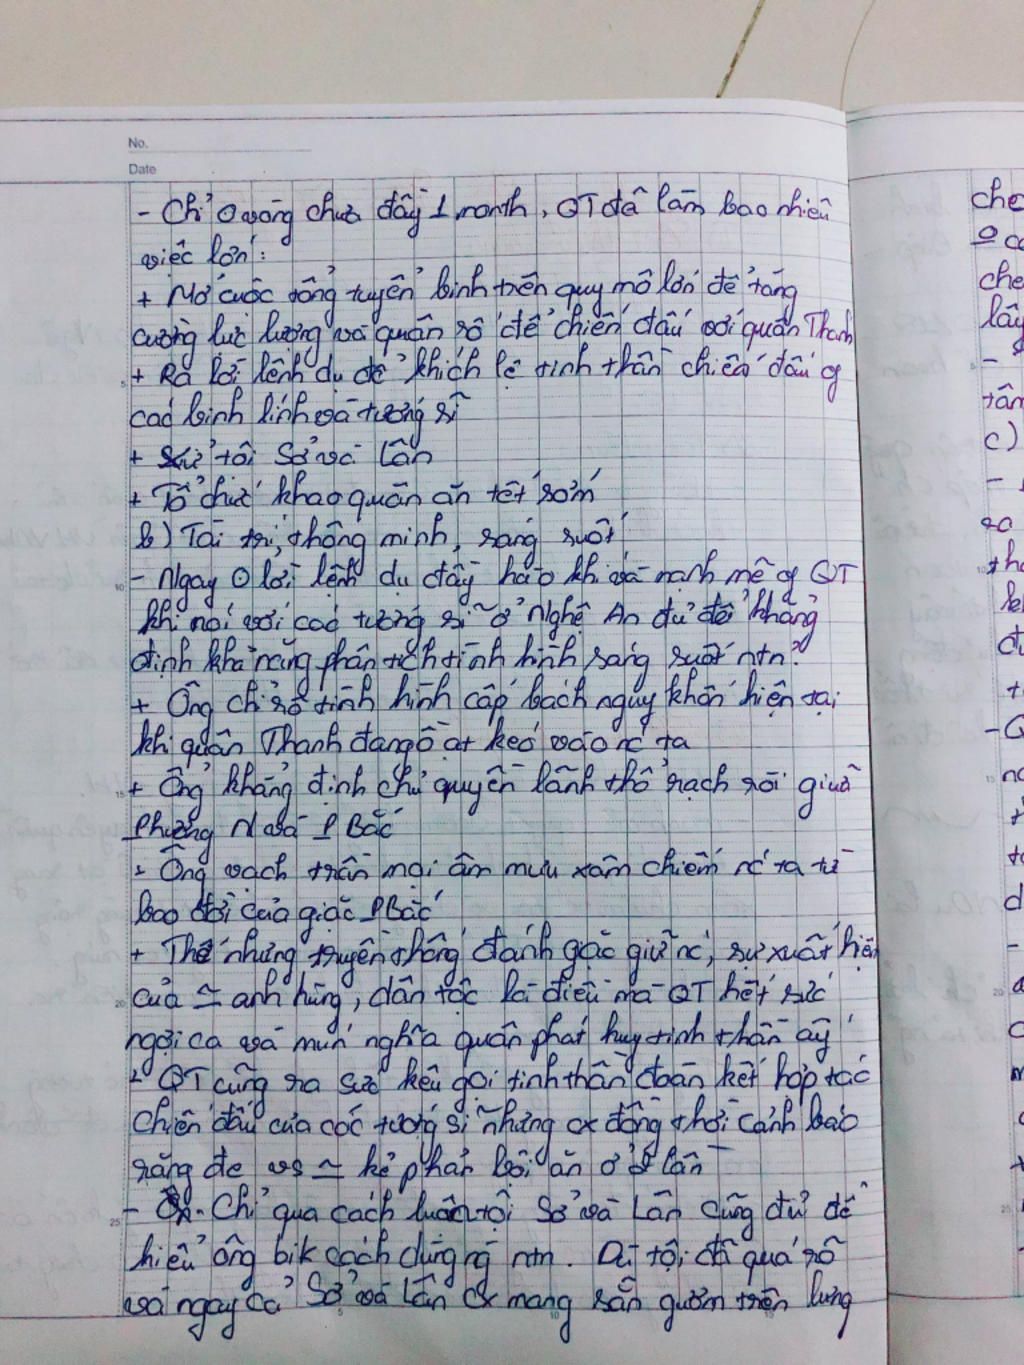 No.
Date
- Chỉ O vòng chưa đầy 1 month, QT đã làm bao nhiêu
việc lớn:
+ Mở cuộc tổng tuyển binh trên quy mô lớn để tăng
cường lực lượng và quân số để chiến đấu với quân Thanh
+ Ra lời lệnh dụ để khích lệ tinh thần chiến đấu of
các binh lính và tướng sĩ
+ Xử tội Sở và Lân
+ Tổ chức khao quân ăn tết sớm
b) Tài trí, thông minh, sáng suốt
- Ngay O lời lệnh dụ đầy hào khí và mạnh mẽ of QT
khi nói với các tướng sĩ ở Nghệ An đủ để khẳng
định khả năng phân tích tình hình sáng suốt ntn?
+ Ông chỉ rõ tình hình cấp bách nguy khốn hiện tại
khi quân Thanh đang ồ ạt kéo vào nc ta
+ Ông khẳng định chủ quyền lãnh thổ rạch ròi giữa
phương N và P Bắc
+ Ông vạch trần mọi âm mưu xâm chiếm nc ta từ
bao đời của giặc P Bắc
+ Thế nhưng truyền thống đánh giặc giữ nc, sự xuất hiện
của ≃ anh hùng, dân tộc là điều mà QT hết sức
ngợi ca và mún nghĩa quân phát huy tinh thần ấy
+ QT cũng ra sức kêu gọi tinh thần đoàn kết hợp tác
chiến đấu của các tướng sĩ nhưng cx đồng thời cảnh báo
răn đe vs ≃ kẻ phản bội ăn ở 2 lần
- Chỉ qua cách luận tội Sở và Lân cũng đủ để
hiểu ông bik cách dùng ng ntn. Dù tội đã quá rõ
và ngay cả Sở và Lân cx mang sẵn gươm trên lưng
che
che
lấy
tâm
c)
ra
- Q
5
10
15
20
25